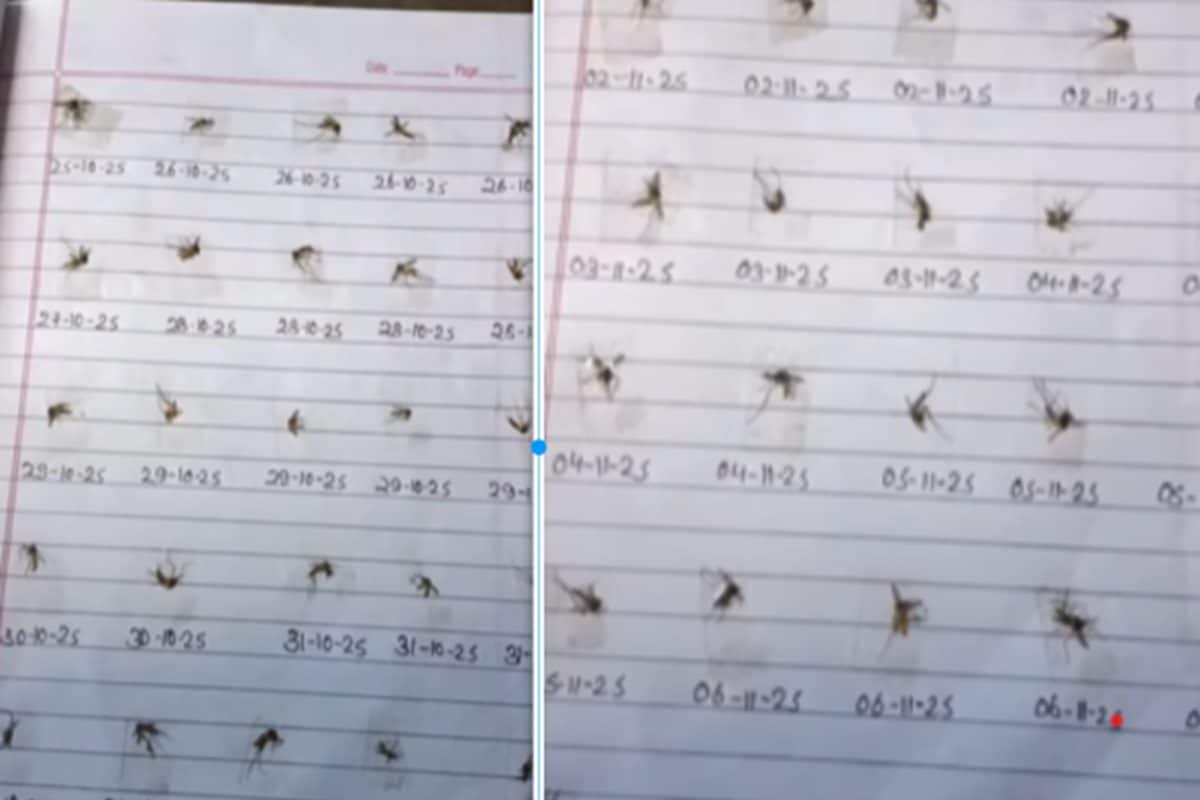 Date Page
25-10-25 26-10-25 26-10-25 26-10-25 26-10
27-10-25 28-10-25 28-10-25 28-10-25 28-1
29-10-25 29-10-25 29-10-25 29-10-25 29-1
30-10-25 30-10-25 31-10-25 31-10-25 31-
02-11-25 02-11-25 02-11-25 02-11-25
03-11-25 03-11-25 03-11-25 04-11-25 0
04-11-25 04-11-25 05-11-25 05-11-25 05-
5-11-25 06-11-25 06-11-25 06-11-25 0